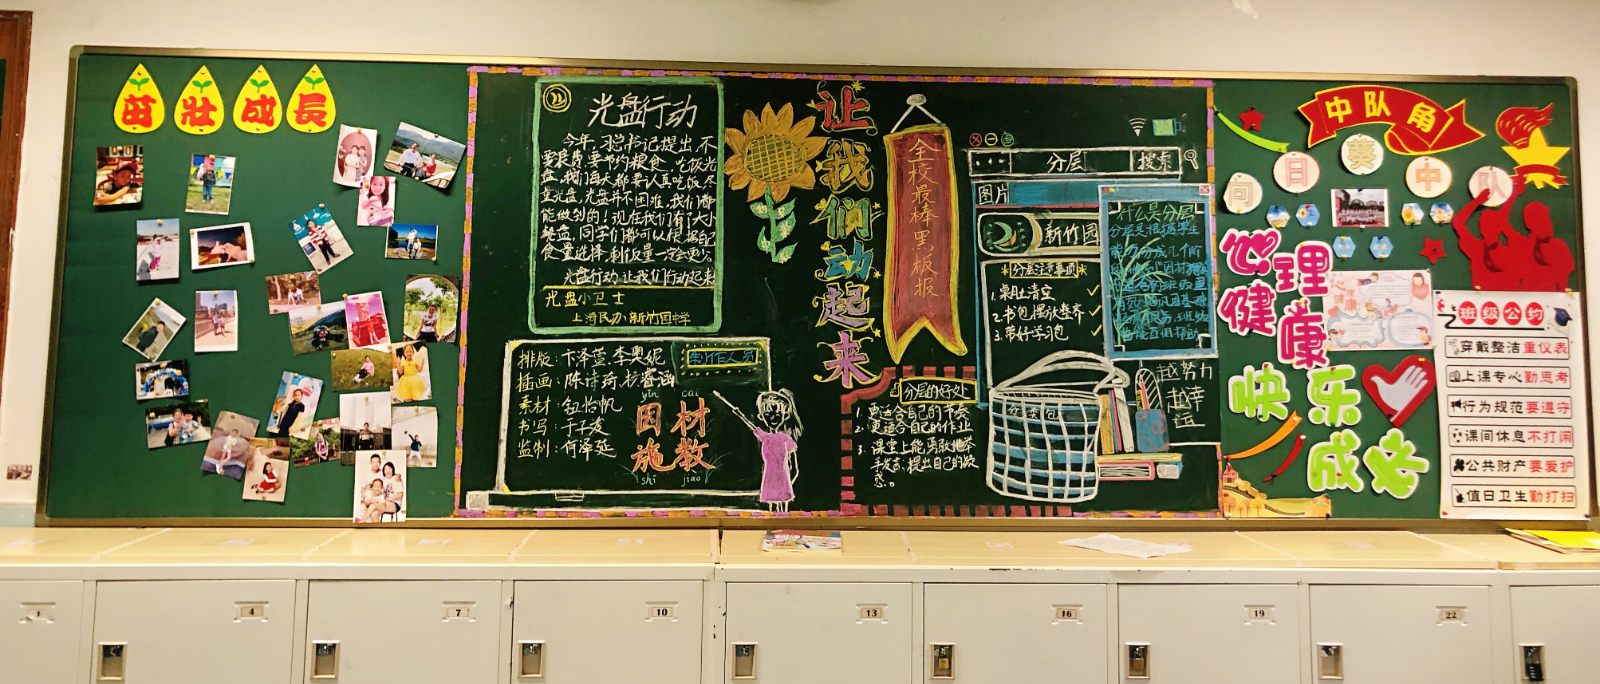 茁壮成长
光盘行动
今年,习总书记提出,不
要浪费,要节约粮食,吃饭光
盘,我们每天都要认真吃饭,尽
量光盘,光盘并不困难,我们都
能做到的!现在我们有了大小
餐盘,同学们都可以根据自己
食量选择,剩饭量一定会更少
光盘行动,让我们行动起来
光盘小卫士
上海民办新竹园中学
制作人员
排版:卞泽萱 李奥妮
插画:陈诗琦
素材:钮怡帆
书写:于子凌
监制:何泽延
yīn cái
因材
施教
shī jiào
让我们动起来
全校最棒黑板报
分层 搜索
图片
新竹园
分层注意事项
1.桌肚清空 ✓
2.书包摆放整齐 ✓
3.带好学习包 ✓
什么是分层
分层是根据学生
分层的好处
1.更适合自己的节奏
2.更适合自己的作业
3.课堂上能勇敢地举
手发言,提出自己的疑
惑。
分类包
越努力
越幸
运
中队角
向日葵中队
心理健康
快乐成长
心理健康
班级公约
穿戴整洁重仪表
上课专心勤思考
行为规范要遵守
课间休息不打闹
公共财产要爱护
值日卫生勤打扫
4
7
10
13
16
19
22